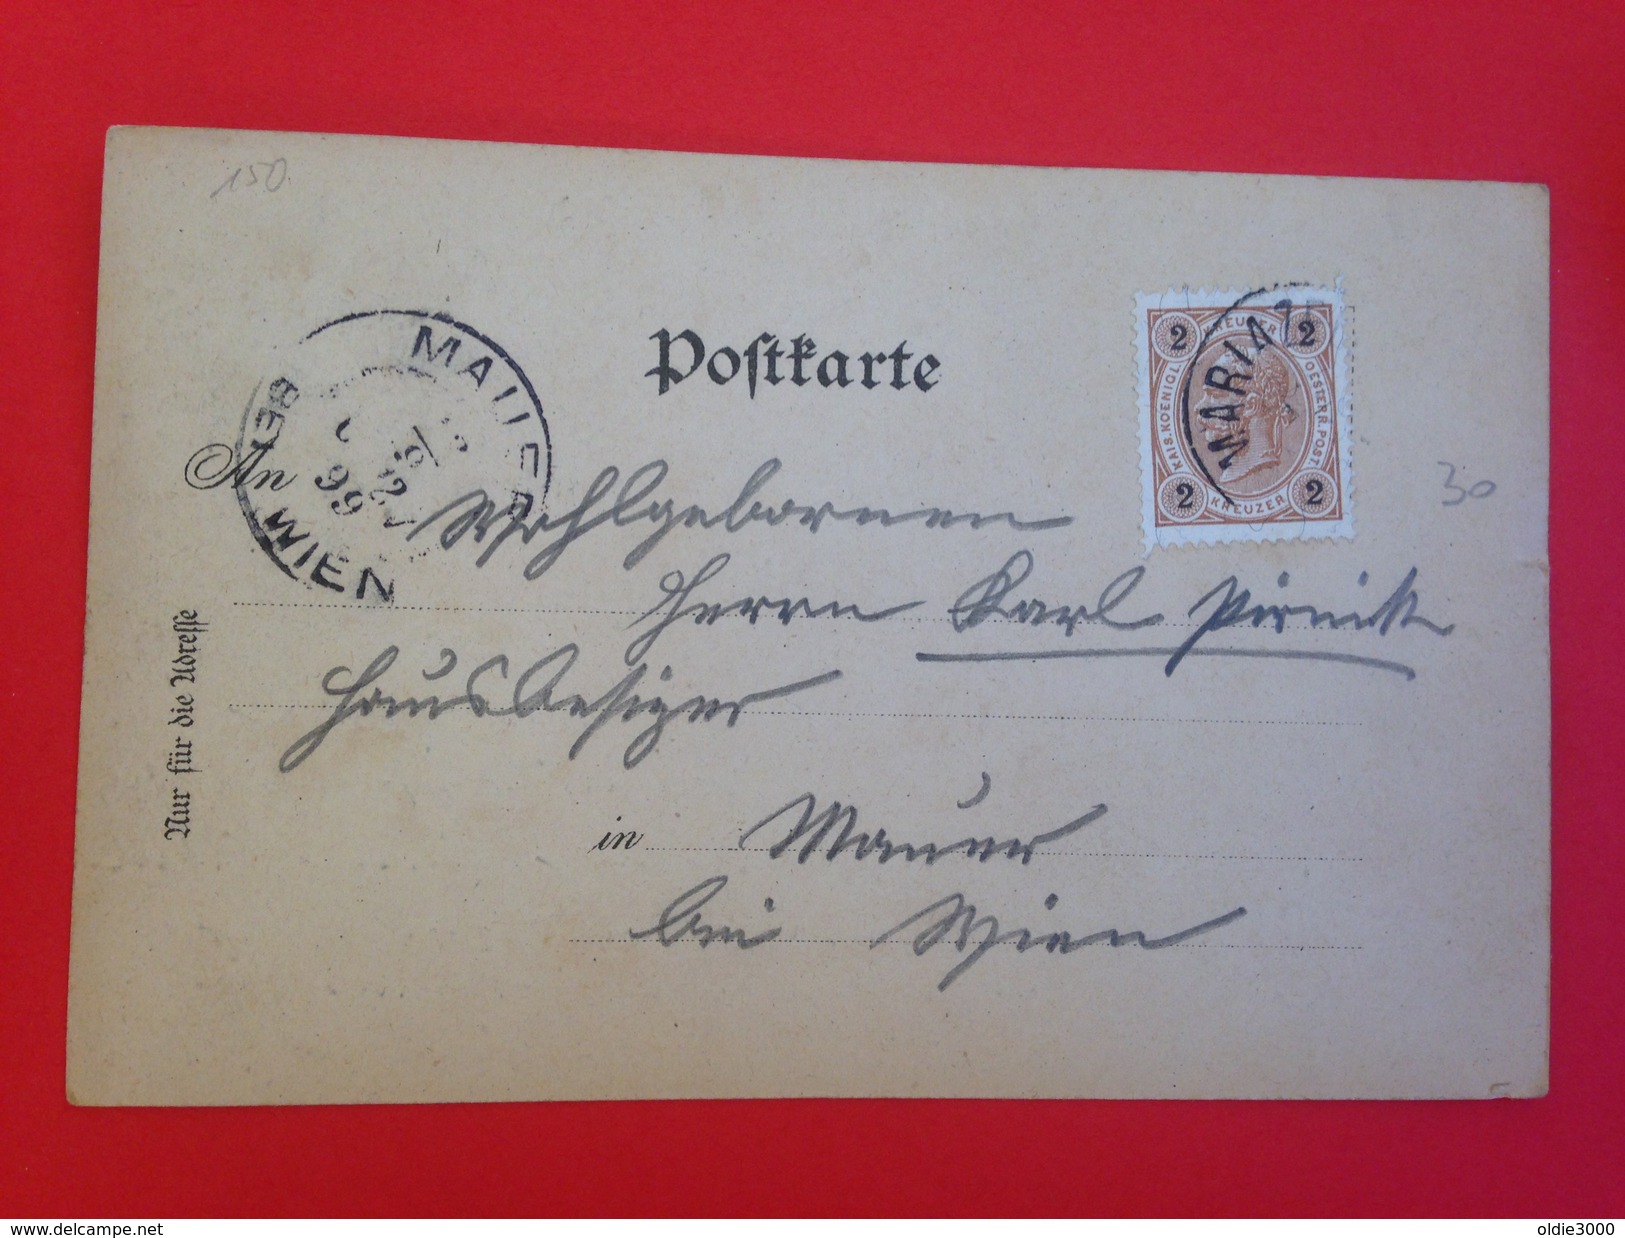 150.
Postkarte
MARIAZ
2 KREUZER 2
KAIS. KOENIGL. OESTERR. POST.
2 KREUZER 2
30
MAUER
BEI WIEN
99
An Wohlgebornen
Herrn Karl
Hausbesitzer
in Mauer
bei Wien
Nur für die Adresse
www.delcampe.net
oldie3000